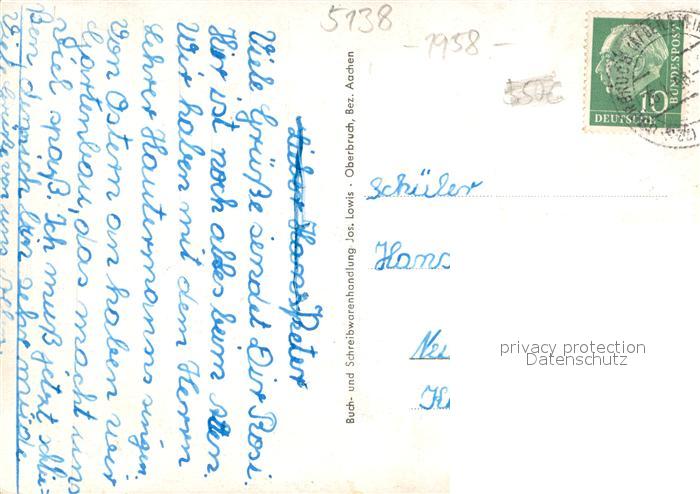 5138
- 1958 -
550€
10
DEUTSCHE
BUNDESPOST
Lieber Hans Peter
Viele Grüße sendet Dir Rosi.
Hir ist noch alles beim Alten.
Wir haben mit dem Herrn
Lehrer Hautermanns singen.
Von Ostern an haben wir
Gartenbau, das macht uns
Viel spaß. Ich muß jetzt schlie=
ßen denn ich bin sehr müde
Viele Grüße von uns Allen.
Buch- und Schreibwarenhandlung Jos. Lowis · Oberbruch, Bez. Aachen
Schüler
Hans
privacy protection
Datenschutz